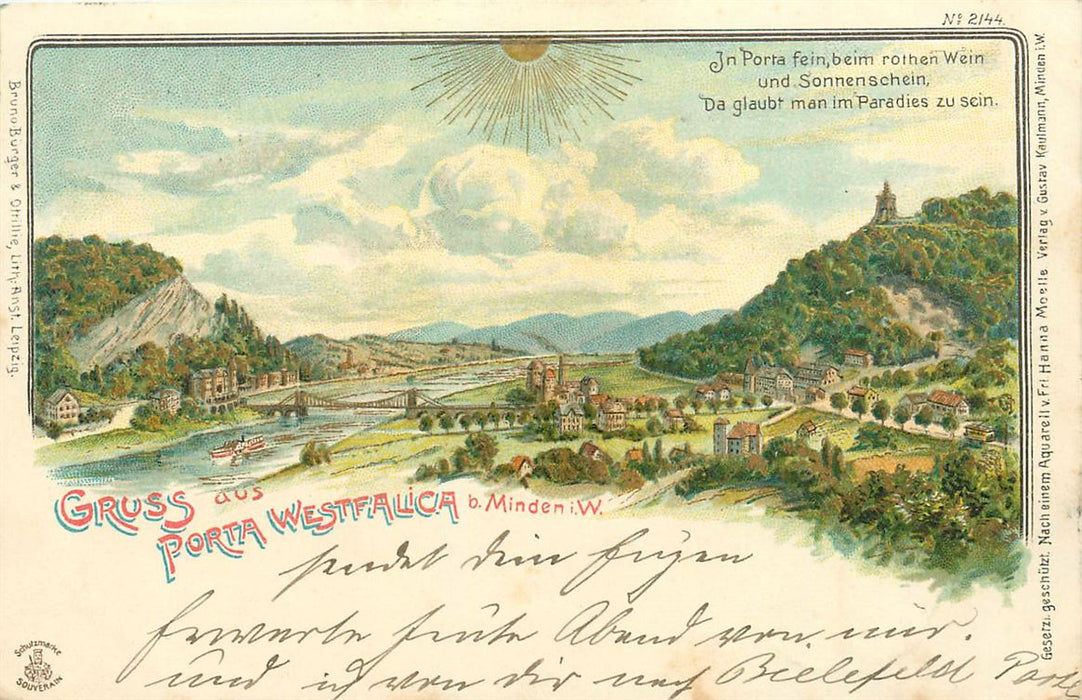 No 2144.
In Porta fein, beim rothen Wein
und Sonnenschein,
Da glaubt man im Paradies zu sein.
Bruno Bürger & Ottillie, Lith. Anst. Leipzig.
Gesetzl. geschützt. Nach einem Aquarell v. Frl. Hanna Moelle Verlag v. Gustav Kaufmann, Minden i. W.
GRUSS aus
PORTA WESTFALICA b. Minden i. W.
sendet dein Eugen
Erwarte heute Abend von mir.
und ich von dir nach Bielefeld
Schutzmarke
SOUVERAIN